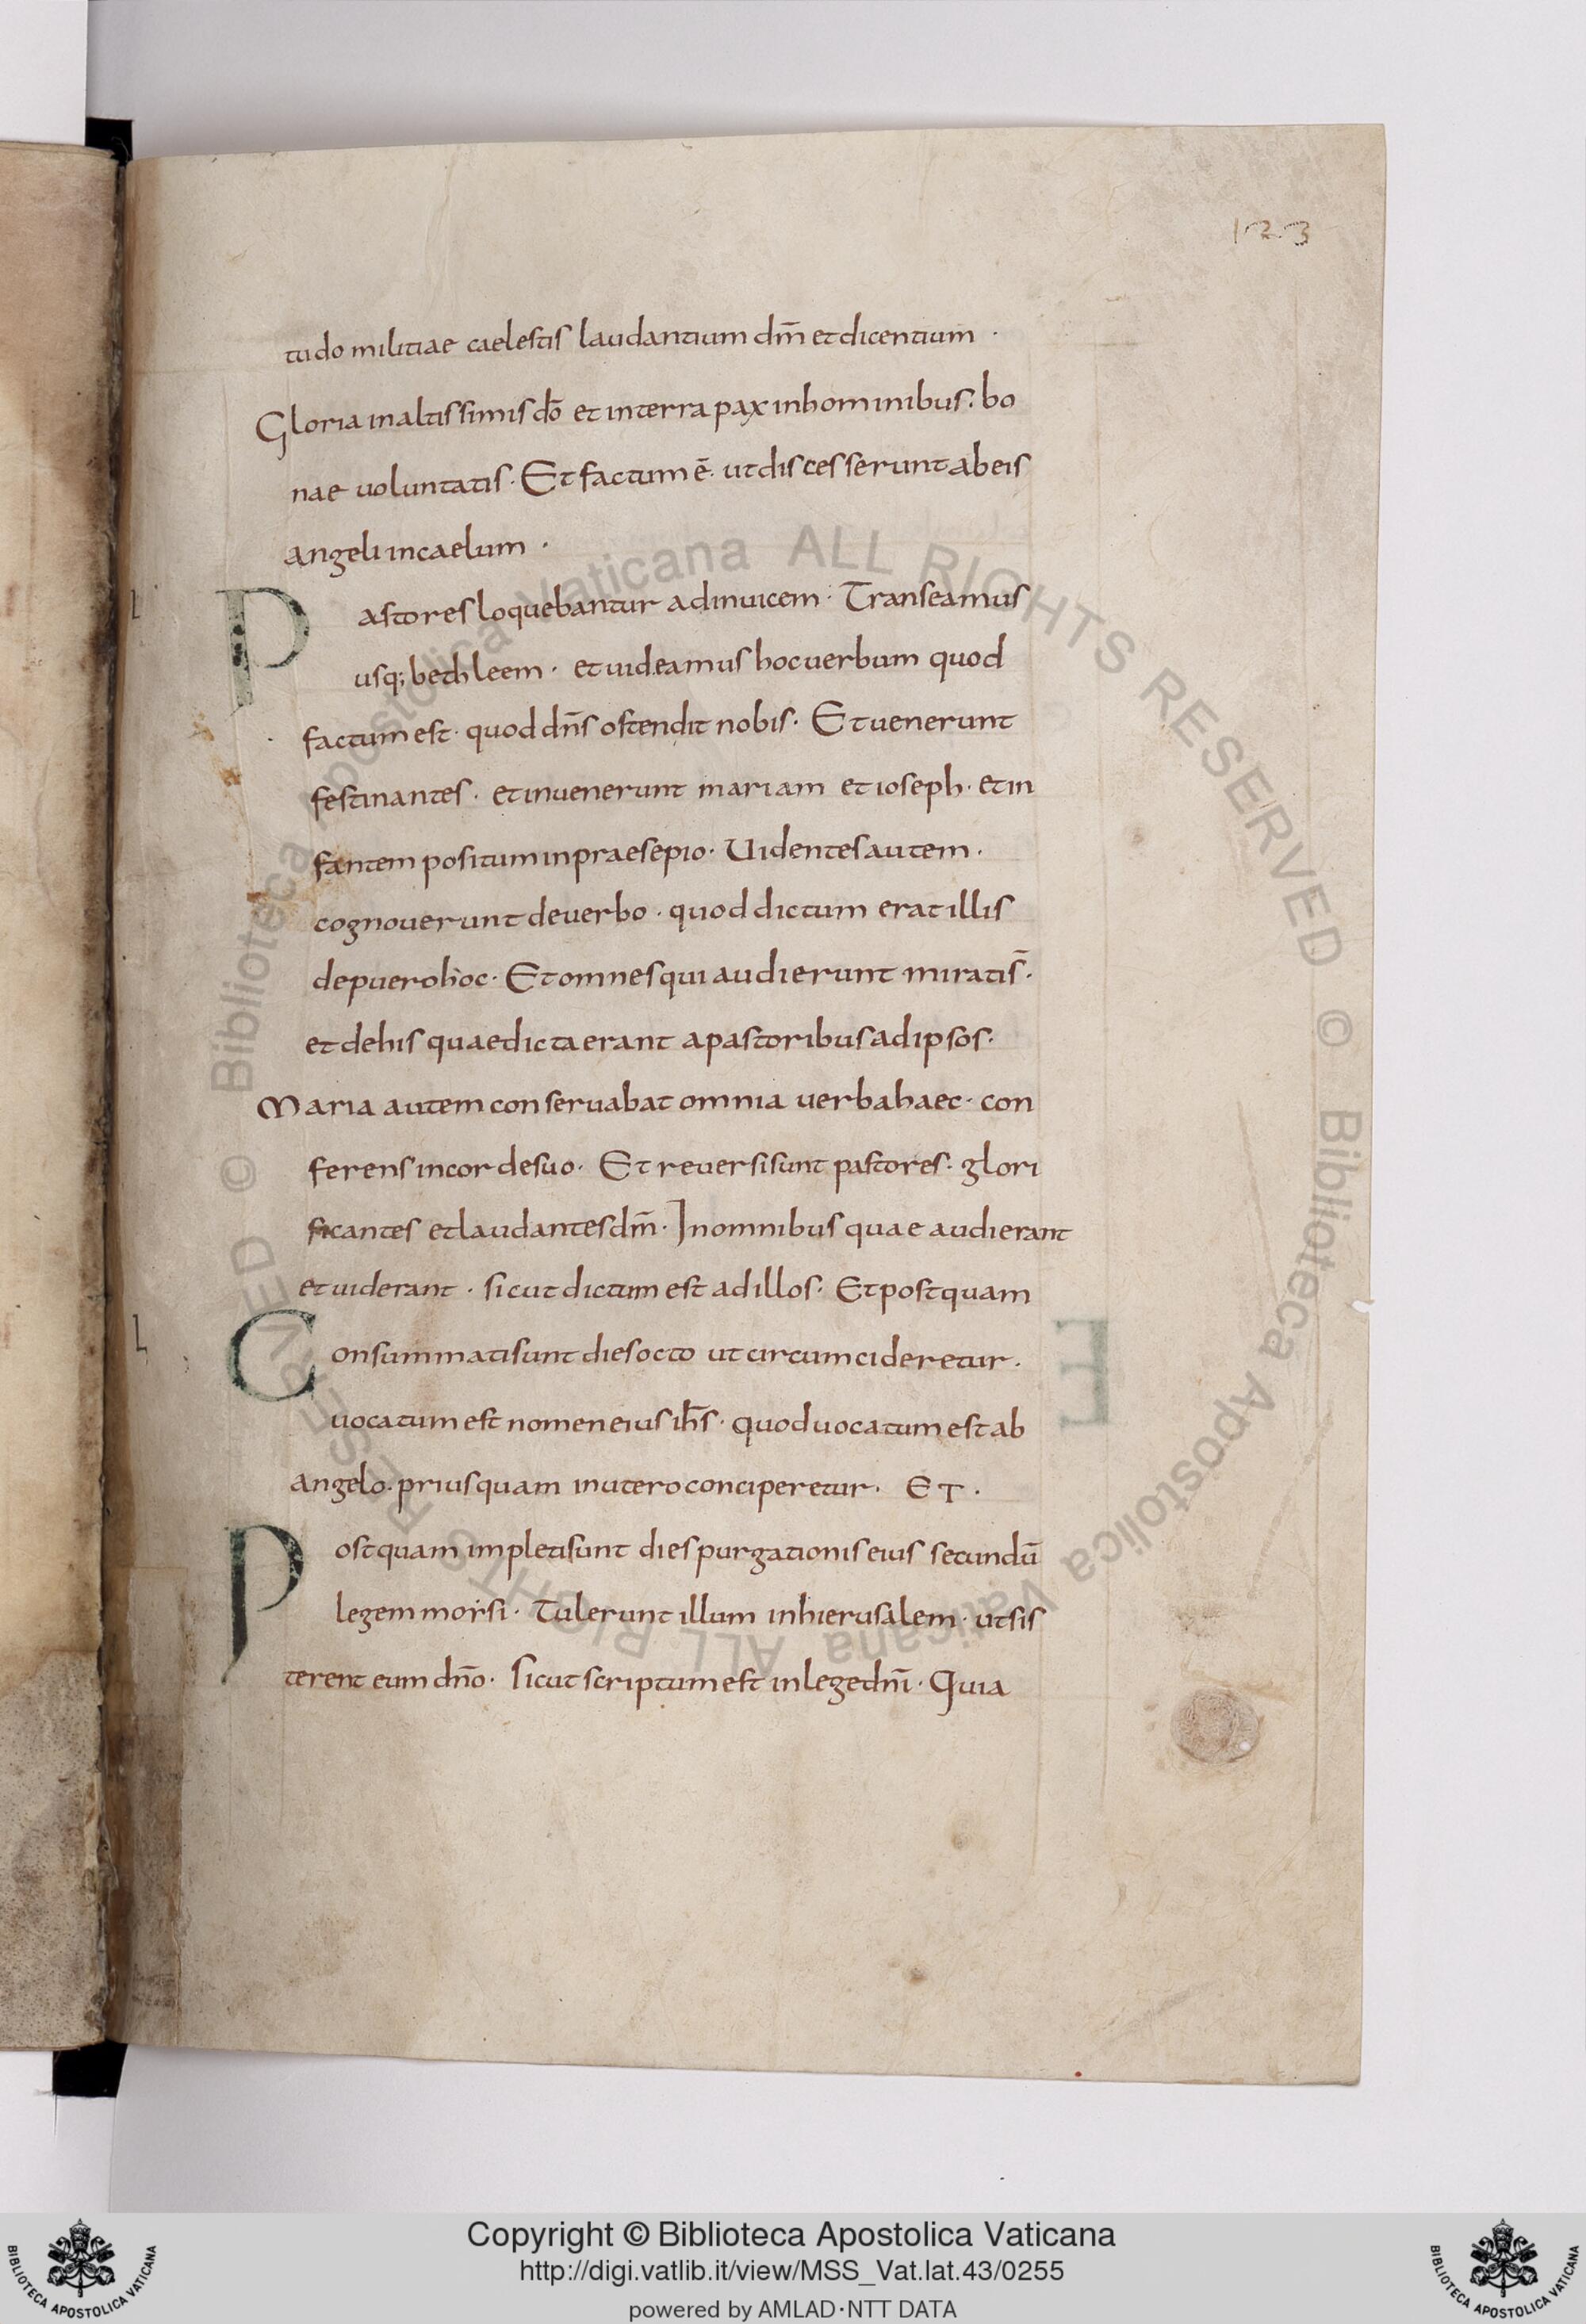 123
tudo militiae caelestis laudantium dm̄ et dicentium ·
Gloria in altissimis dō et in terra pax in hominibus · bo
nae uoluntatis · Et factum ē · ut discesserunt ab eis
angeli in caelum ·
Pastores loquebantur ad inuicem · Transeamus
usq; bethleem · et uideamus hoc uerbum quod
factum est · quod dn̄s ostendit nobis · Et uenerunt
festinantes · et inuenerunt mariam et ioseph · et in
fantem positum in praesepio · Uidentes autem ·
cognouerunt de uerbo · quod dictum erat illis
de puero hoc · Et omnes qui audierunt mirati s̄ ·
et de his quae dicta erant a pastoribus ad ipsos ·
Maria autem conseruabat omnia uerba haec · con
ferens in corde suo · Et reuersi sunt pastores · glori
ficantes et laudantes dm̄ · In omnibus quae audierant
et uiderant · sicut dictum est ad illos · Et postquam
Consummati sunt dies octo ut circumcideretur ·
uocatum est nomen eius ih̄s · quod uocatum est ab
angelo · priusquam in utero conciperetur · ET ·
Postquam impleti sunt dies purgationis eius secundū
legem moysi · Tulerunt illum in hierusalem · ut sis
terent eum dn̄o · sicut scriptum est in lege dn̄i · Quia
© Biblioteca Apostolica Vaticana ALL RIGHTS RESERVED © Biblioteca Apostolica Vaticana ALL RIGHTS RESERVED
Copyright © Biblioteca Apostolica Vaticana
http://digi.vatlib.it/view/MSS_Vat.lat.43/0255
powered by AMLAD·NTT DATA
BIBLIOTECA APOSTOLICA VATICANA
BIBLIOTECA APOSTOLICA VATICANA